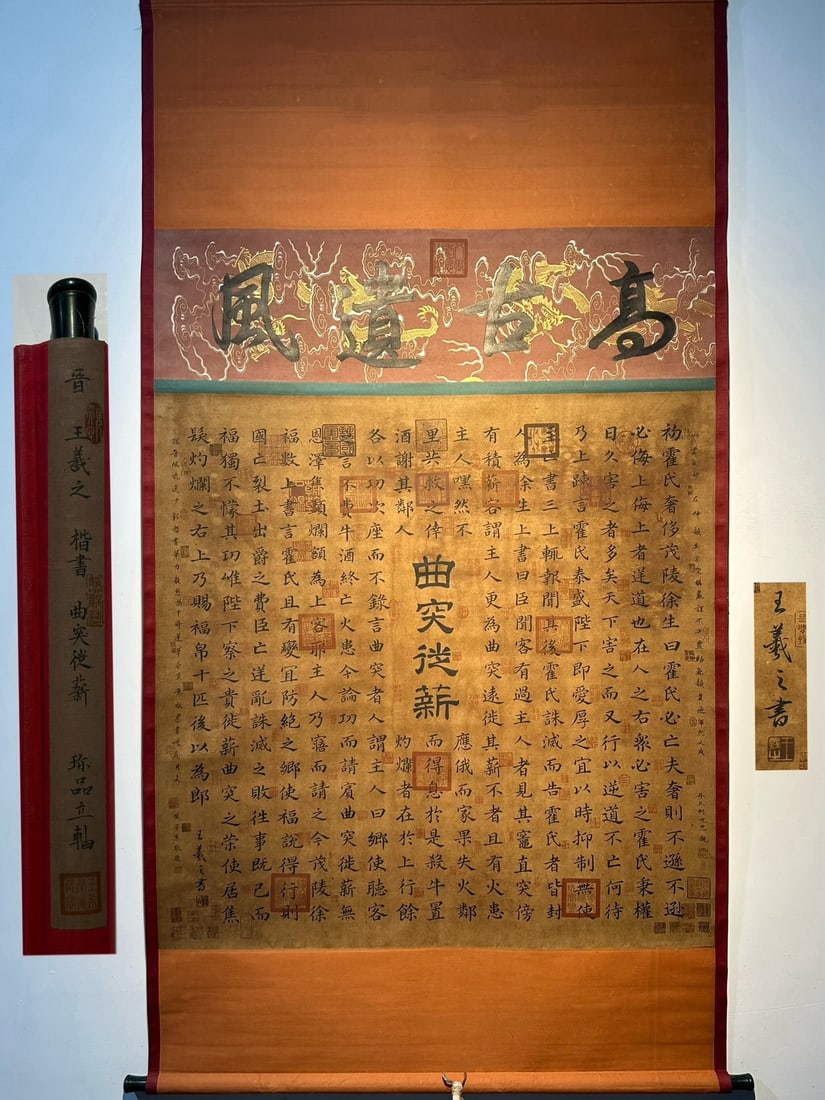 高古遺風
初霍氏奢侈茂陵徐生曰霍氏必亡夫奢則不遜不遜
必侮上侮上者逆道也在人之右衆必害之霍氏秉權
日久害之者多矣天下害之而又行以逆道不亡何待
乃上疎言霍氏泰盛陛下即愛厚之宜以時抑制無使
至亡書三上輒報聞其後霍氏誅滅而告霍氏者皆封
人為余生上書曰臣聞客有過主人者見其竈直突傍
有積薪客謂主人更為曲突遠徙其薪不者且有火患
主人嘿然不應俄而家果失火鄰
里共救之倖而得息於是殺牛置
酒謝其鄰人灼爛者在於上行餘
曲突徙薪
各以功次座而不錄言曲突者人謂主人曰鄉使聽客
之言不費牛酒終亡火患今論功而請賓曲突徙薪無
恩澤焦頭爛額為上客耶主人乃寤而請之今茂陵徐
福數上書言霍氏且有變宜防絕之鄉使福說得行則
國亡裂土出爵之費臣亡逆亂誅滅之敗往事既已而
福獨不懞其功惟陛下察之貴徙薪曲突之策使居焦
髮灼爛之右上乃賜福帛十匹後以為郎
王羲之書
晉 王羲之 楷書 曲突徙薪 珎品立軸
王羲之書